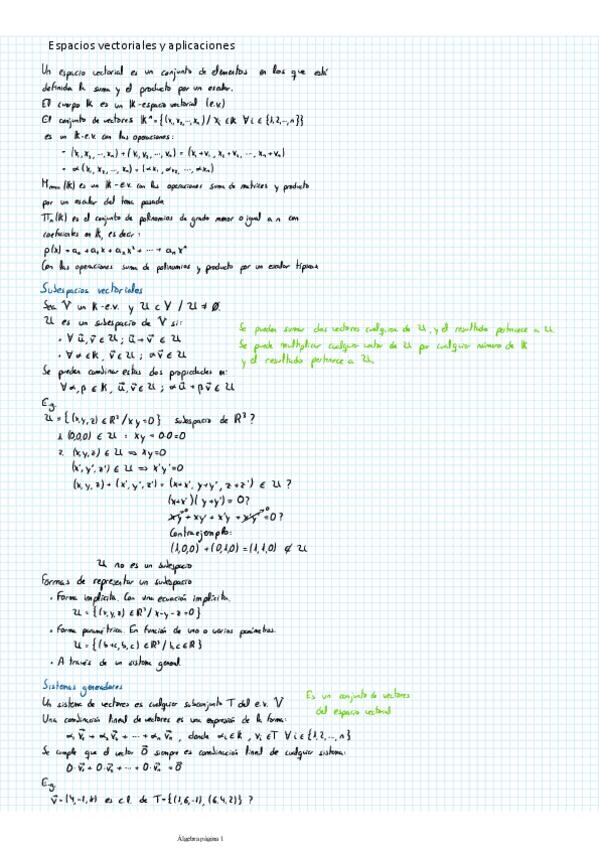 Espacios vectoriales y aplicaciones
Un espacio vectorial es un conjunto de elementos en los que está
definida la suma y el producto por un escalar.
El cuerpo K es un K-espacio vectorial (e.v.)
El conjunto de vectores Kⁿ = {(x₁, x₂, ..., xₙ) / xᵢ ∈ K ∀ i ∈ {1, 2, ..., n}}
es un K-e.v. con las operaciones:
- (x₁, x₂, ..., xₙ) + (v₁, v₂, ..., vₙ) = (x₁ + v₁, x₂ + v₂, ..., xₙ + vₙ)
- α(x₁, x₂, ..., xₙ) = (αx₁, αx₂, ..., αxₙ)
Mₘₓₙ(K) es un K-e.v. con las operaciones suma de matrices y producto
por un escalar del tema pasado
Πₙ(K) es el conjunto de polinomios de grado menor o igual a n con
coeficientes en K, es decir:
p(x) = a₀ + a₁x + a₂x² + ... + aₙxⁿ
Con las operaciones suma de polinomios y producto por un escalar típicas
Subespacios vectoriales
Sea V un K-e.v. y U ⊂ V / U ≠ ∅.
U es un subespacio de V si:
· ∀ u⃗, v⃗ ∈ U ; u⃗ + v⃗ ∈ U
· ∀ α ∈ K, v⃗ ∈ U ; αv⃗ ∈ U
Se pueden sumar dos vectores cualquiera de U, y el resultado pertenece a U.
Se puede multiplicar cualquier vector de U por cualquier número de K
y el resultado pertenece a U.
Se pueden combinar estas dos propiedades en:
∀ α, β ∈ K, u⃗, v⃗ ∈ U ; αu⃗ + βv⃗ ∈ U
E.g.
U = {(x, y, z) ∈ R³ / xy = 0} subespacio de R³ ?
1. (0,0,0) ∈ U : xy = 0·0 = 0
2. (x, y, z) ∈ U ⇒ xy = 0
(x', y', z') ∈ U ⇒ x'y' = 0
(x, y, z) + (x', y', z') = (x+x', y+y', z+z') ∈ U ?
(x+x')(y+y') = 0?
xy + xy' + x'y + x'y' = 0?
Contraejemplo:
(1,0,0) + (0,1,0) = (1,1,0) ∉ U
U no es un subespacio
Formas de representar un subespacio
· Forma implícita. Con una ecuación implícita.
U = {(x, y, z) ∈ R³ / x-y-z = 0}
· Forma paramétrica. En función de uno o varios parámetros.
U = {(b+c, b, c) ∈ R³ / b, c ∈ R}
· A través de un sistema general
Sistemas generadores
Un sistema de vectores es cualquier subconjunto T del e.v. V
Es un conjunto de vectores
del espacio vectorial
Una combinación lineal de vectores es una expresión de la forma:
α₁v⃗₁ + α₂v⃗₂ + ... + αₙv⃗ₙ , donde αᵢ ∈ K, vᵢ ∈ T ∀ i ∈ {1, 2, ..., n}
Se cumple que el vector 0⃗ siempre es combinación lineal de cualquier sistema:
0·v⃗₁ + 0·v⃗₂ + ... + 0·v⃗ₙ = 0⃗
E.g.
es c.l. de T = {(1,6,-1), (6,4,2)} ?
Álgebra página 1